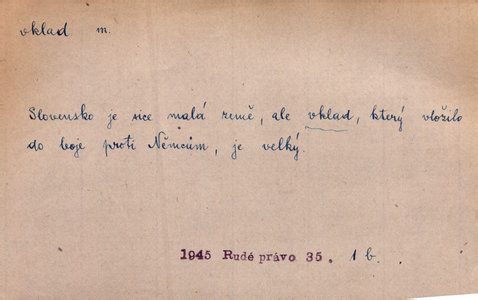 vklad m.
Slovensko je sice malá země, ale vklad, který vložilo
do boje proti Němcům, je velký.
1945 Rudé právo 35. 1 b.